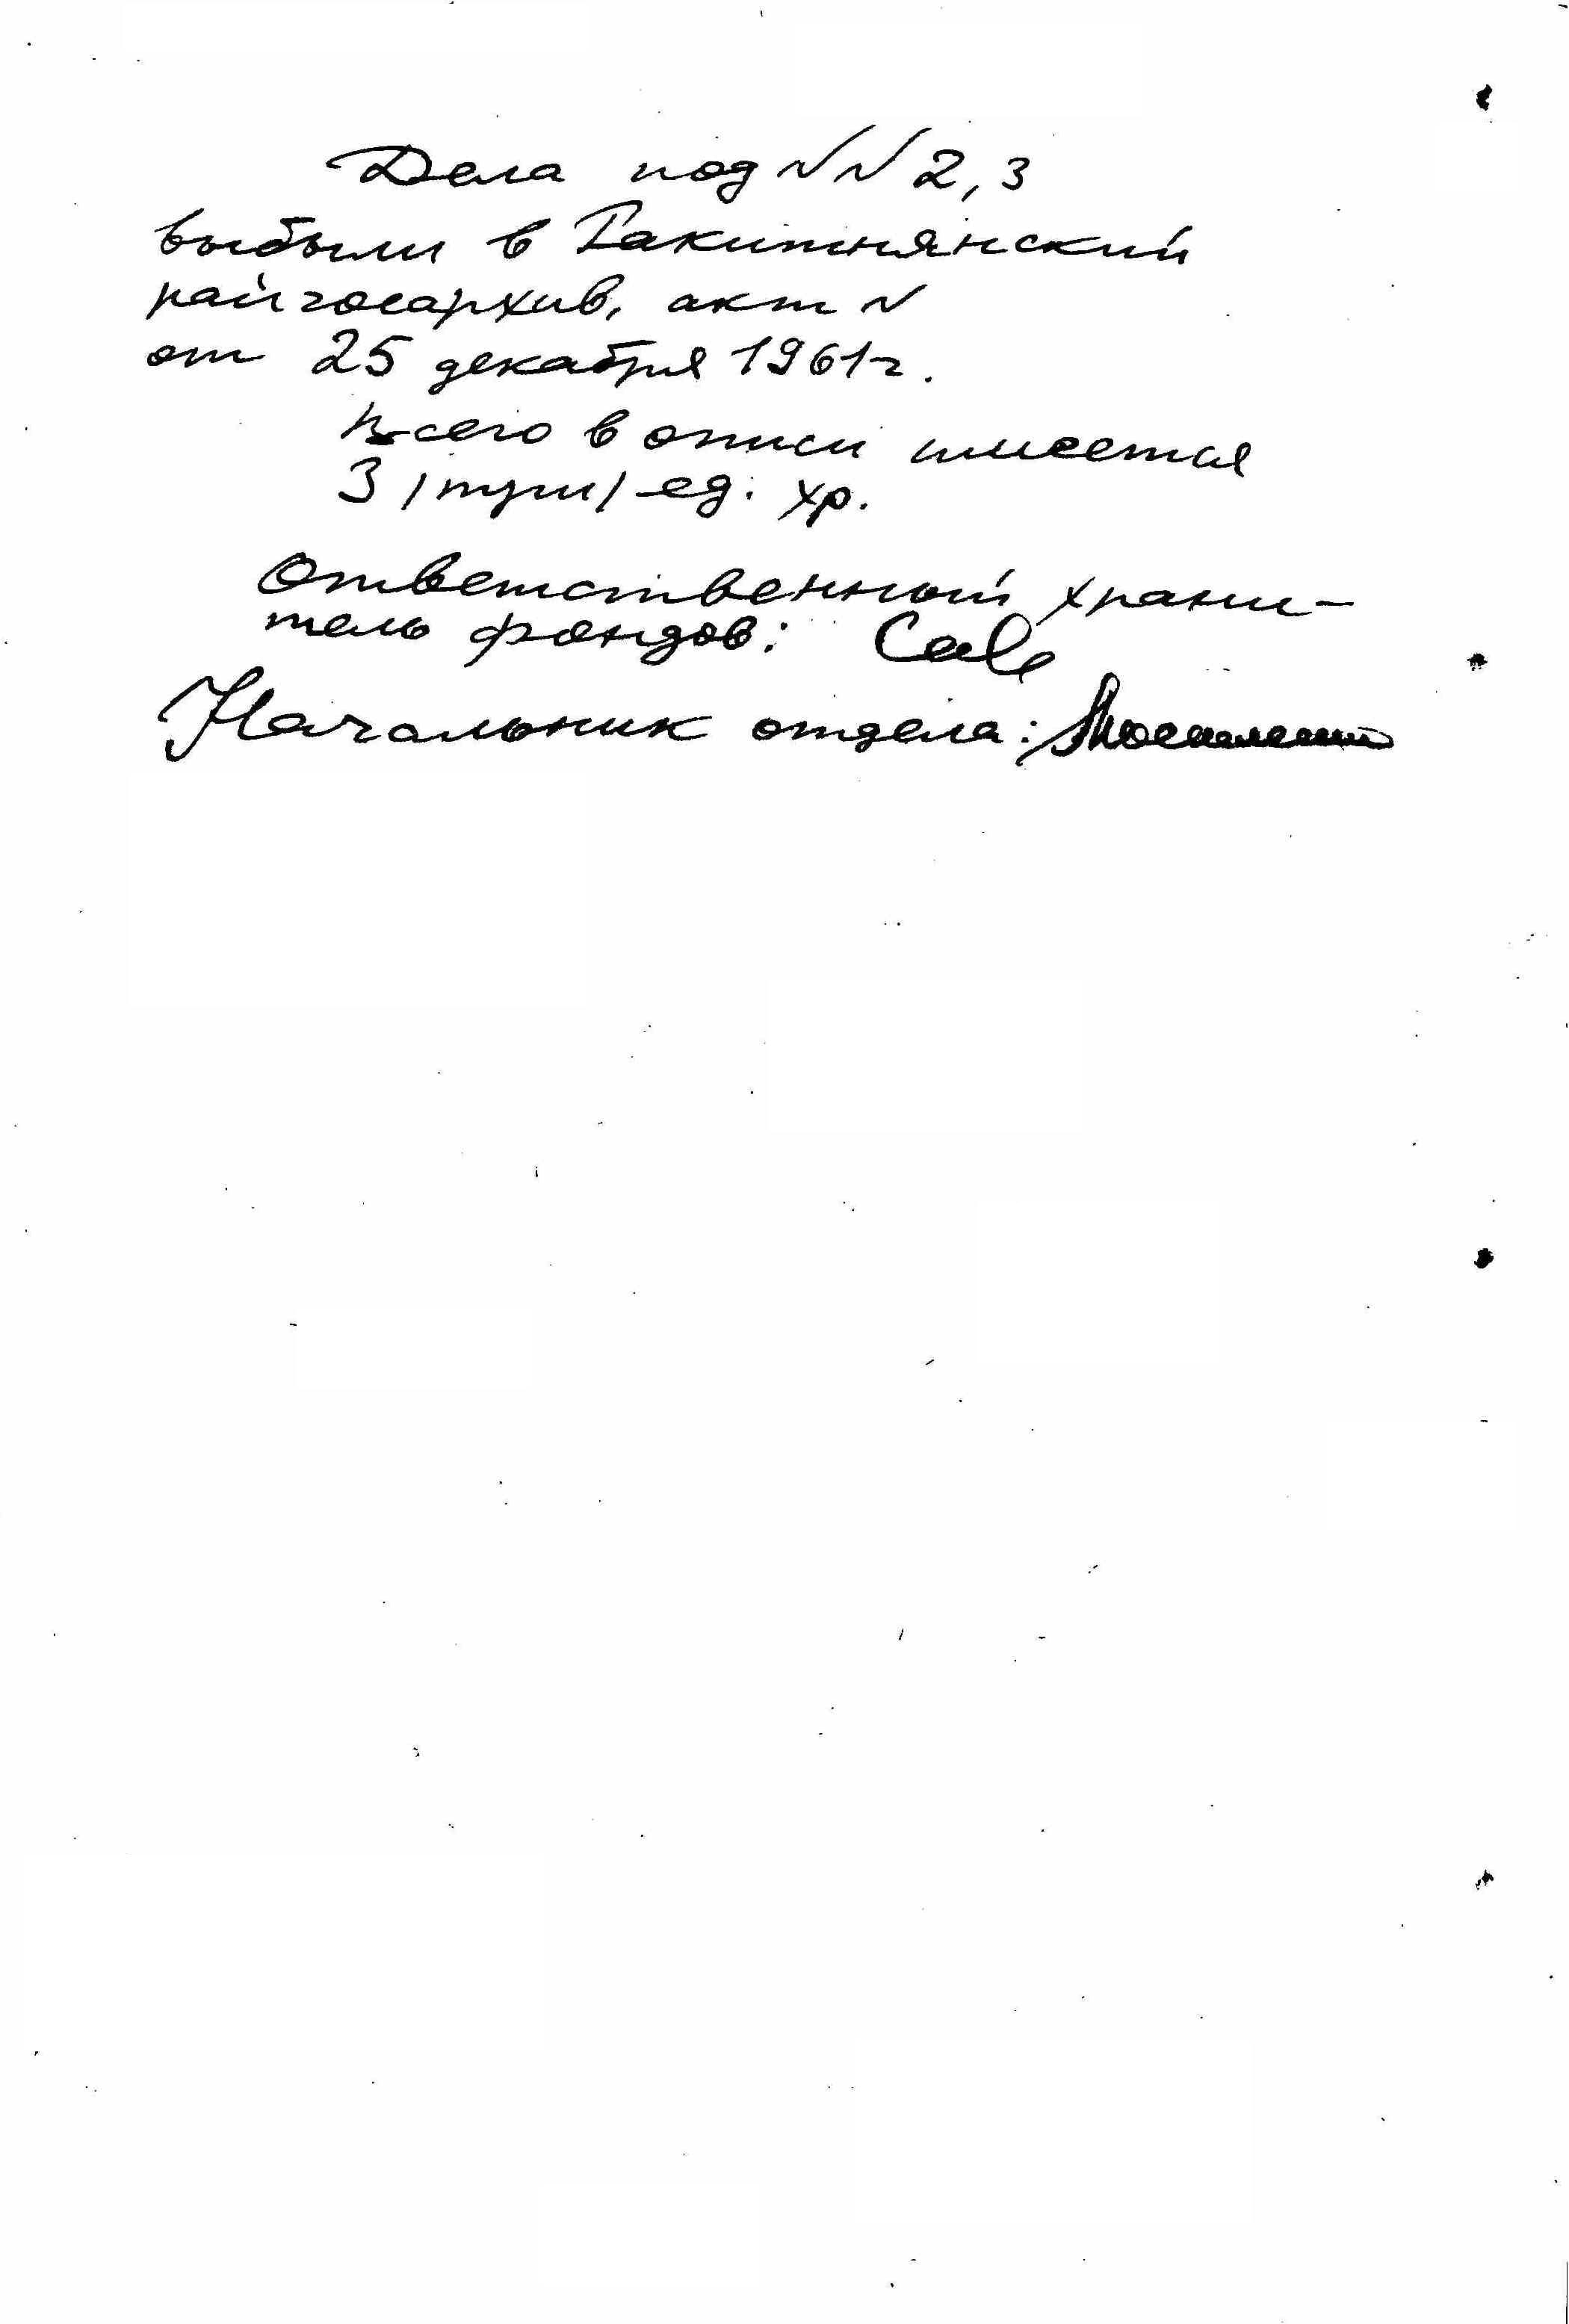 Дела под NN 2, 3
выбыли в Ракитнянский
райгосархив, акт N
от 25 декабря 1961г.
Всего в описи имеется
3 /три/ ед. хр.
Ответственный храни-
тель фондов:
Начальник отдела: